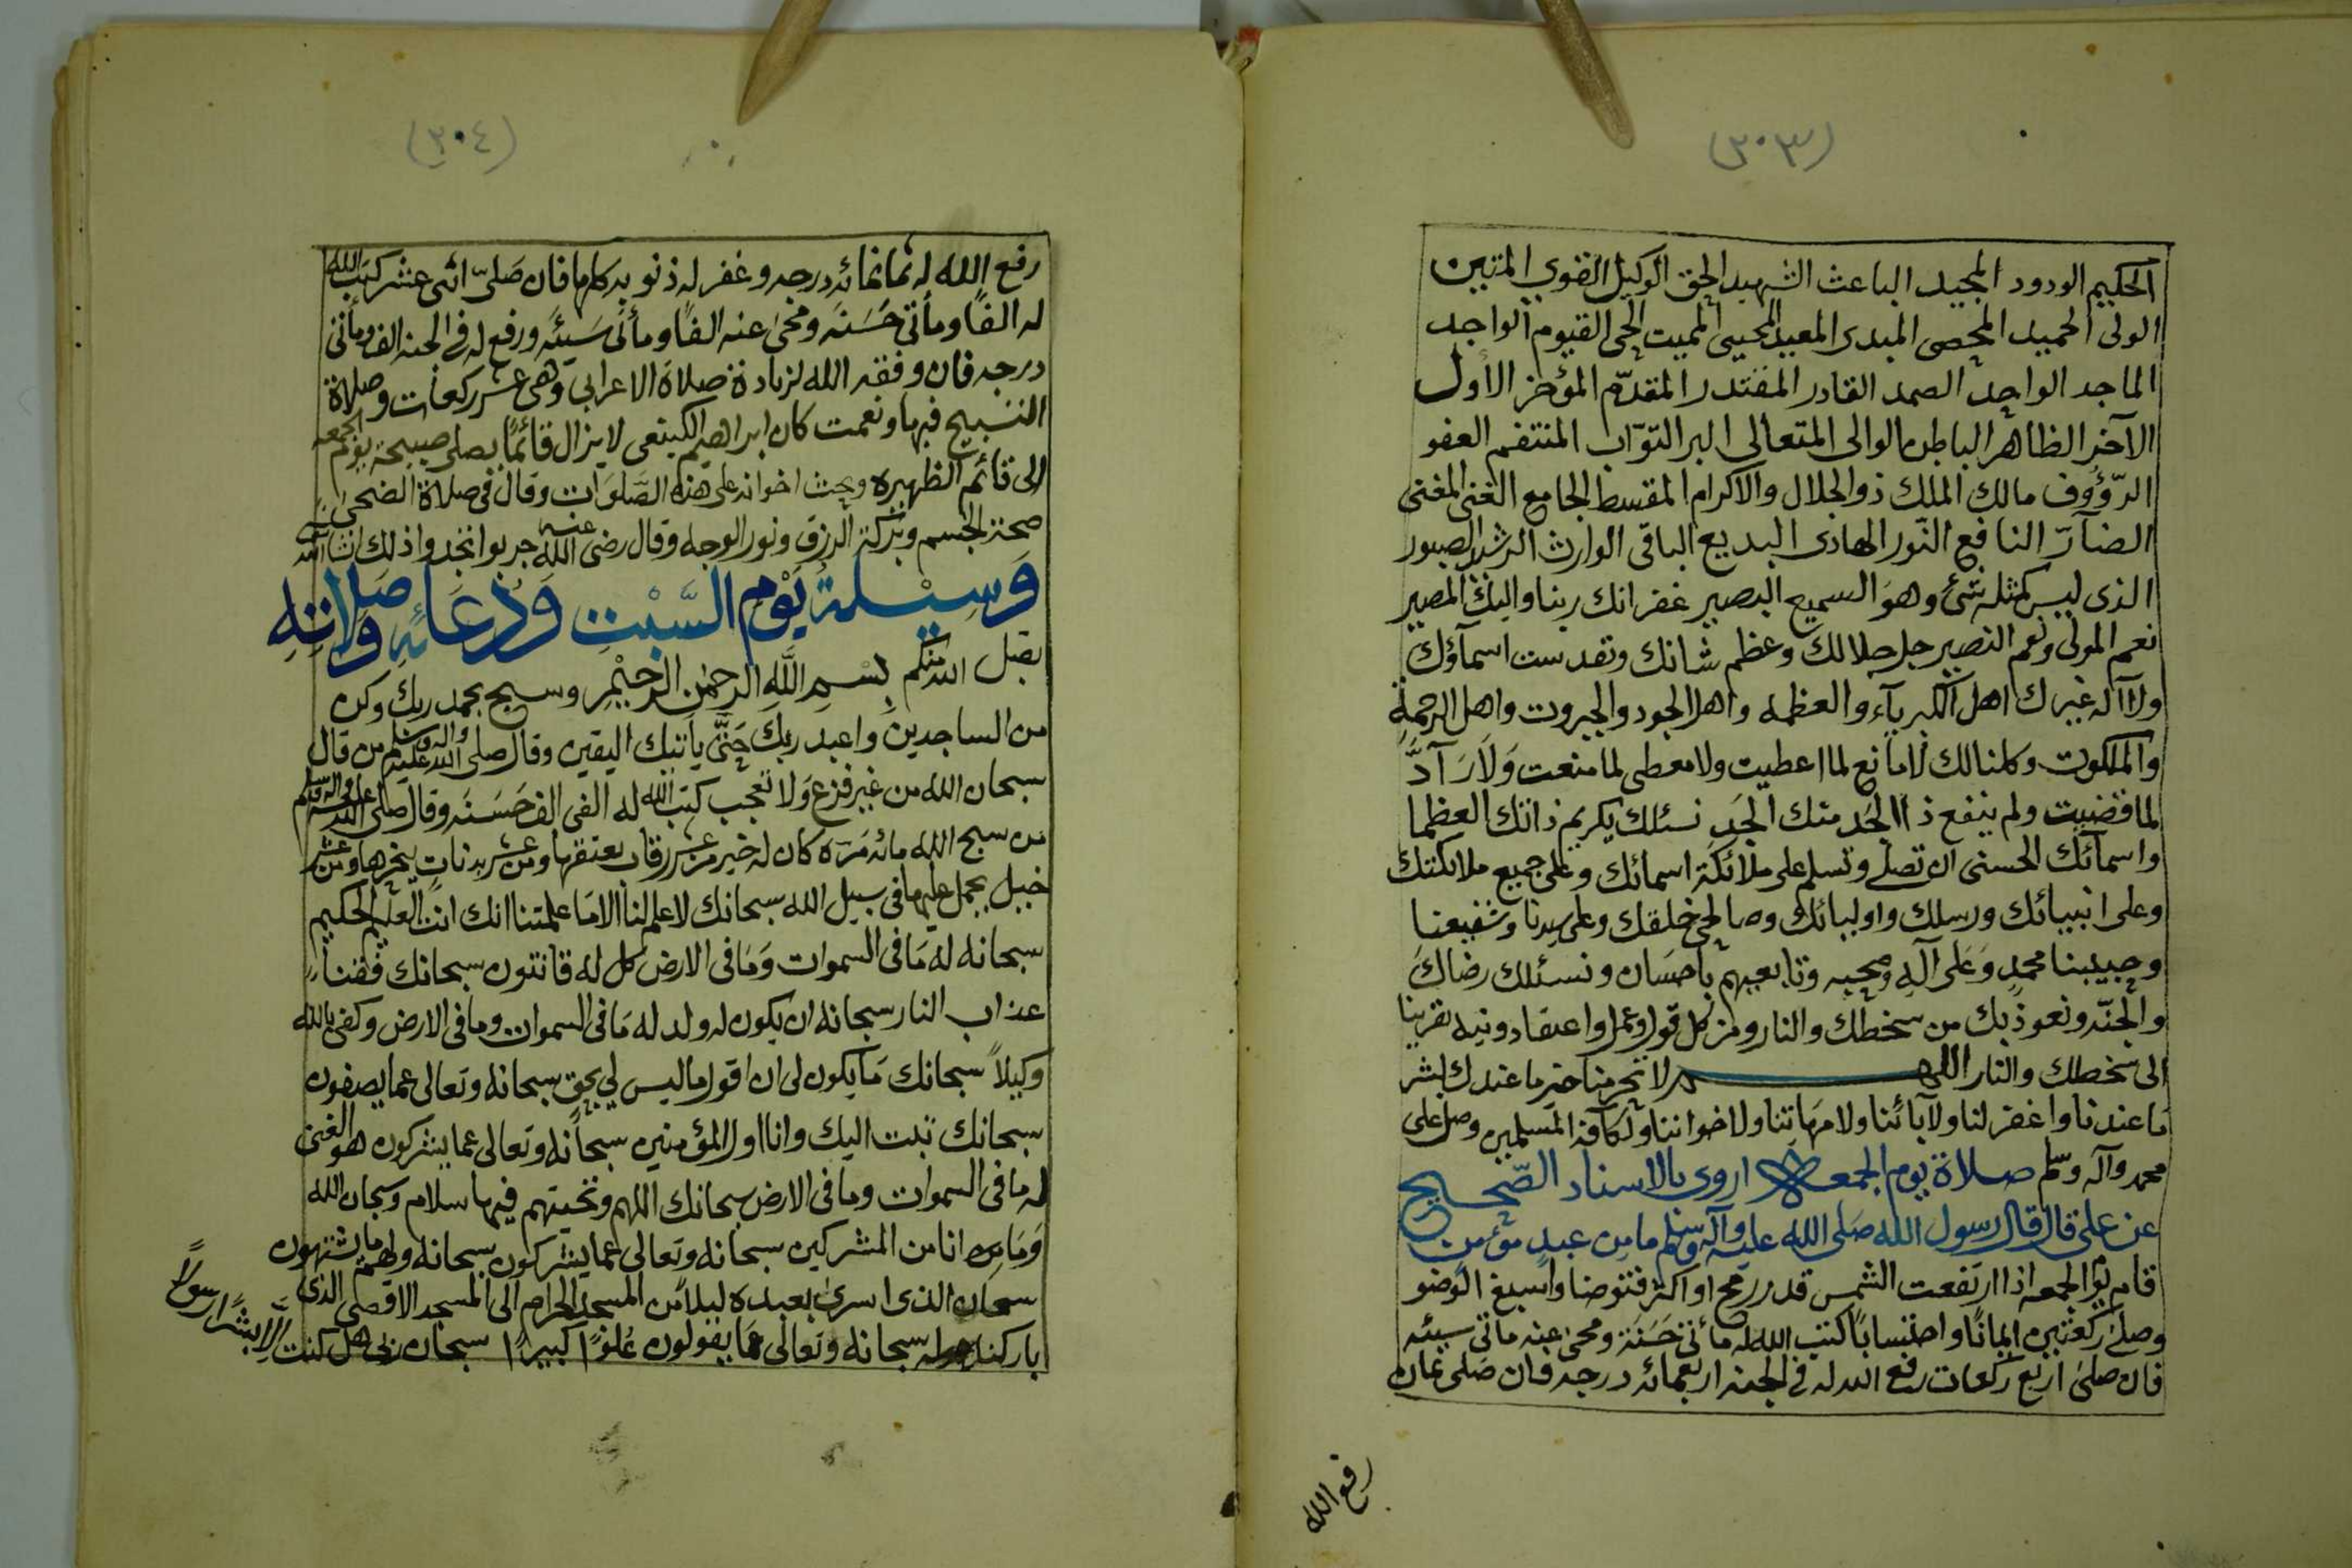 (٣٠٣)
الحكيم الودود المجيد الباعث الشهيد الحق الوكيل القوي المتين
الولى الحميد المحصى المبدى المعيد المحيى المميت الحى القيوم الواجد
الماجد الواحد الصمد القادر المقتدر المقدّم المؤخر الأول
الآخر الظاهر الباطن الوالى المتعالى البر التوّاب المنتقم العفو
الرّؤوف مالك الملك ذو الجلال والاكرام المقسط الجامع الغنى المغنى
الضآرّ النافع النّور الهادى البديع الباقى الوارث الرشيد الصبور
الذى ليس كمثله شئ وهو السميع البصير غفرانك ربنا واليك المصير
نعم المولى ونعم النصير جل جلالك وعظم شانك وتقدست اسمآؤك
ولا آله غيرك اهل الكبريآء والعظمه واهل الجود والجبروت واهل الرحمة
والملكوت وكلنا لك لا مانع لما اعطيت ولا معطى لما منعت ولا رآدّ
لما قضيت ولم ينفع ذا الجد منك الجد نسئلك بكريم ذاتك العظما
واسمآئك الحسنى ان تصلى وتسلم على ملائكة اسمائك وعلى جميع ملائكتك
وعلى انبيائك ورسلك واوليائك وصالحى خلقك وعلى سيدنا وشفيعنا
وحبيبنا محمد وعلى آله وصحبه وتابعيهم باحسان ونسئلك رضاك
والجنّه ونعوذ بك من سخطك والنار ومن كل قول وعمل واعتقاد ونيه تقربنا
الى سخطك والنار اللهم لا تحرمنا خير ما عندك لشر
ما عندنا واغفر لنا ولآبائنا ولامهاتنا ولاخواننا ولكافة المسلمين وصل على
محمد وآله وسلم صلاة يوم الجمعه اروى بالاسناد الصّحيح
عن على قال قال رسول الله صلى الله عليه وآله وسلم ما من عبد مؤمن
قام يوم الجمعه اذا ارتفعت الشمس قدر رمح او اكثر فتوضا واسبغ الوضو
وصلى ركعتين ايمانًا واحتسابًا كتب الله له مأتى حسنة ومحى عنه مأتى سيئه
فان صلى اربع ركعات رفع الله له في الجنه اربعمائه درجه فان صلى ثمان
رفع الله
(٣٠٤)
رفع الله له ثمانمائه درجه وغفر له ذنوبه كلها فان صلّى اثنى عشر كتب الله
له الفًا ومأتى حسنه ومحى عنه الفًا ومأتى سيئه ورفع له في الجنه الفا ومأتى
درجه فان وفقه الله لزيادة صلاة الاعرابي وهى عشر ركعات وصلاة
التسبيح فبها ونعمت كان ابراهيم الكينعى لا يزال قائمًا يصلى صبيحة يوم الجمعه
الى قائم الظهيره ويحث اخوانه على هذه الصّلوات وقال فى صلاة الضحى
صحة الجسم وبركة الرزق ونور الوجه وقال رضى الله عنه جربوا تجدوا ذلك انشا الله
وسيلة يوم السّبت ودعائه وصلاته
تقبل الله منكم بسم الله الرحمن الرحيم وسبح بحمد ربك وكن
من الساجدين واعبد ربك حتّى يأتيك اليقين وقال صلى الله عليه وآله وسلم من قال
سبحان الله من غير فزع ولا تعجب كتب الله له الفى الف حسنه وقال صلى الله عليه وآله وسلم
من سبح الله مائه مره كان له خير من عشر رقاب يعتقها ومن عشر بدنات ينحرها ومن عشر
خيل يحمل عليها في سبيل الله سبحانك لا علم لنا الا ما علمتنا انك انت العليم الحكيم
سبحانه له ما فى السموات وما فى الارض كل له قانتون سبحانك فقنا
عذاب النار سبحانه ان يكون له ولد له ما فى السموات وما فى الارض وكفى بالله
وكيلاً سبحانك ما يكون لى ان اقول ما ليس لي بحق سبحانه وتعالى عما يصفون
سبحانك تبت اليك وانا اول المؤمنين سبحانه وتعالى عما يشركون هو الغنى
له ما فى السموات وما فى الارض سبحانك اللهم وتحيتهم فيها سلام وسبحان الله
وما انا من المشركين سبحانه وتعالى عما يشركون سبحانه ولهم ما يشتهون
سبحان الذى اسرى بعبده ليلاً من المسجد الحرام الى المسجد الاقصى الذى
باركنا حوله سبحانه وتعالى عما يقولون علوًا كبيرًا سبحان ربى هل كنت
إلا بشرًا رسولاً